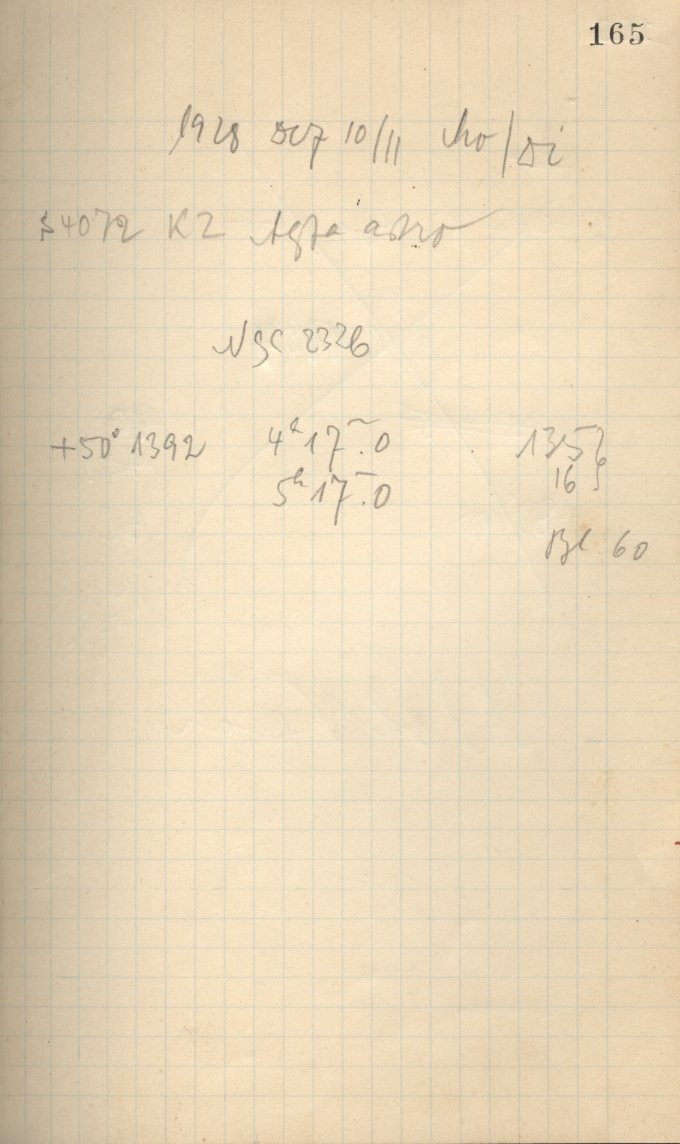 165
1928 Dez 10/11 Mo/Di
S4072 KZ Agfa astro
NGC 2326
+50° 1392 4h 17m.0 1315}
5h 17m.0 16}
Bl 60